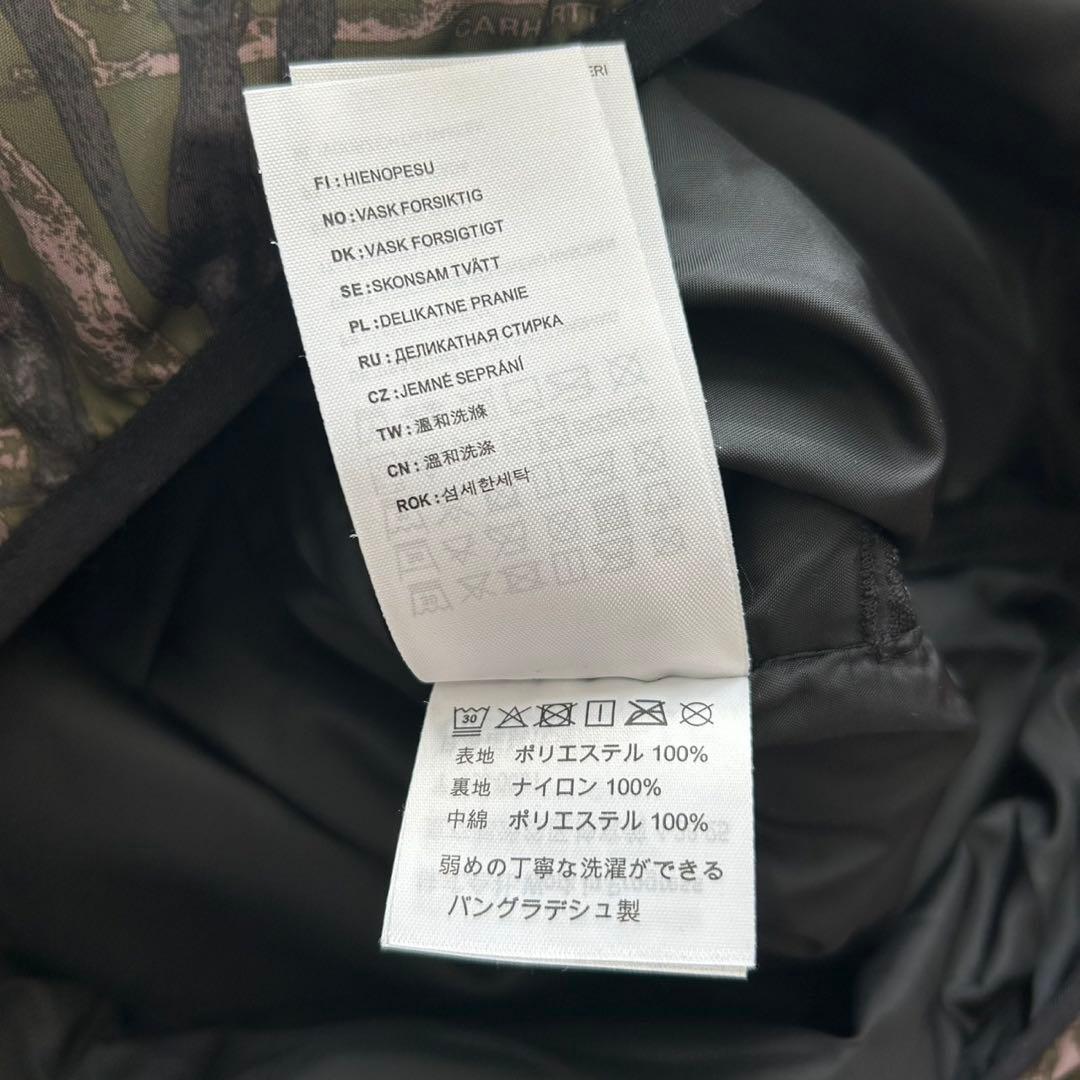 CARH RTT
ERI
FI : HIENOPESU
NO : VASK FORSIKTIG
DK : VASK FORSIGTIGT
SE : SKONSAM TVÄTT
PL : DELIKATNE PRANIE
RU : ДЕЛИКАТНАЯ СТИРКА
CZ : JEMNÉ SEPRÁNÍ
TW : 溫和洗滌
CN : 溫和洗涤
ROK : 섬세한세탁
30
表地 ポリエステル 100%
裏地 ナイロン 100%
中綿 ポリエステル 100%
弱めの丁寧な洗濯ができる
バングラデシュ製